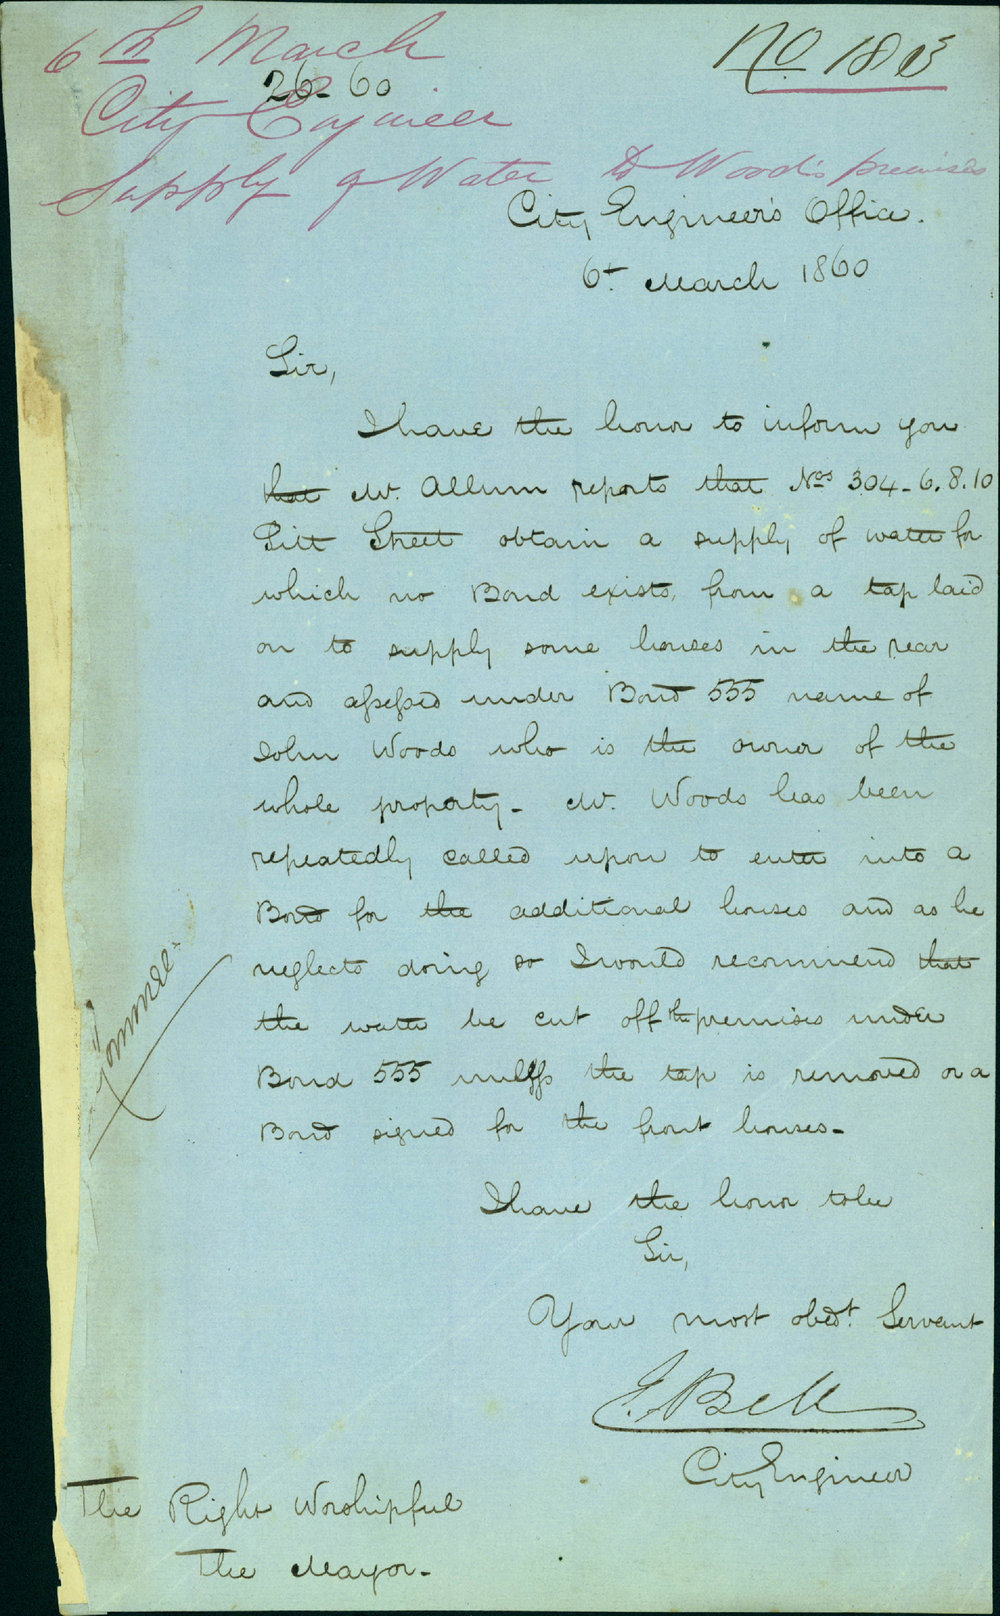 6th March
No 183
26-60
City Engineer
Supply of Water to Wood's premises
City Engineer's Office.
6t March 1860
Sir,
I have the honor to inform you
that Mr. Allum reports that Nos 304-6.8.10
Pitt Street obtain a supply of water for
which no Bond exists, from a tap laid
on to supply some houses in the rear
and assessed under Bond 555 name of
John Woods who is the owner of the
whole property- Mr. Woods has been
repeatedly called upon to enter into a
Bond for the additional houses and as he
neglects doing so I would recommend that
the water be cut off the premises under
Bond 555 unless the tap is removed or a
Bond signed for the front houses-
I have the honor to be
Sir,
Your most obedt. Servant
E. Bell
City Engineer
The Right Worshipful
The Mayor-